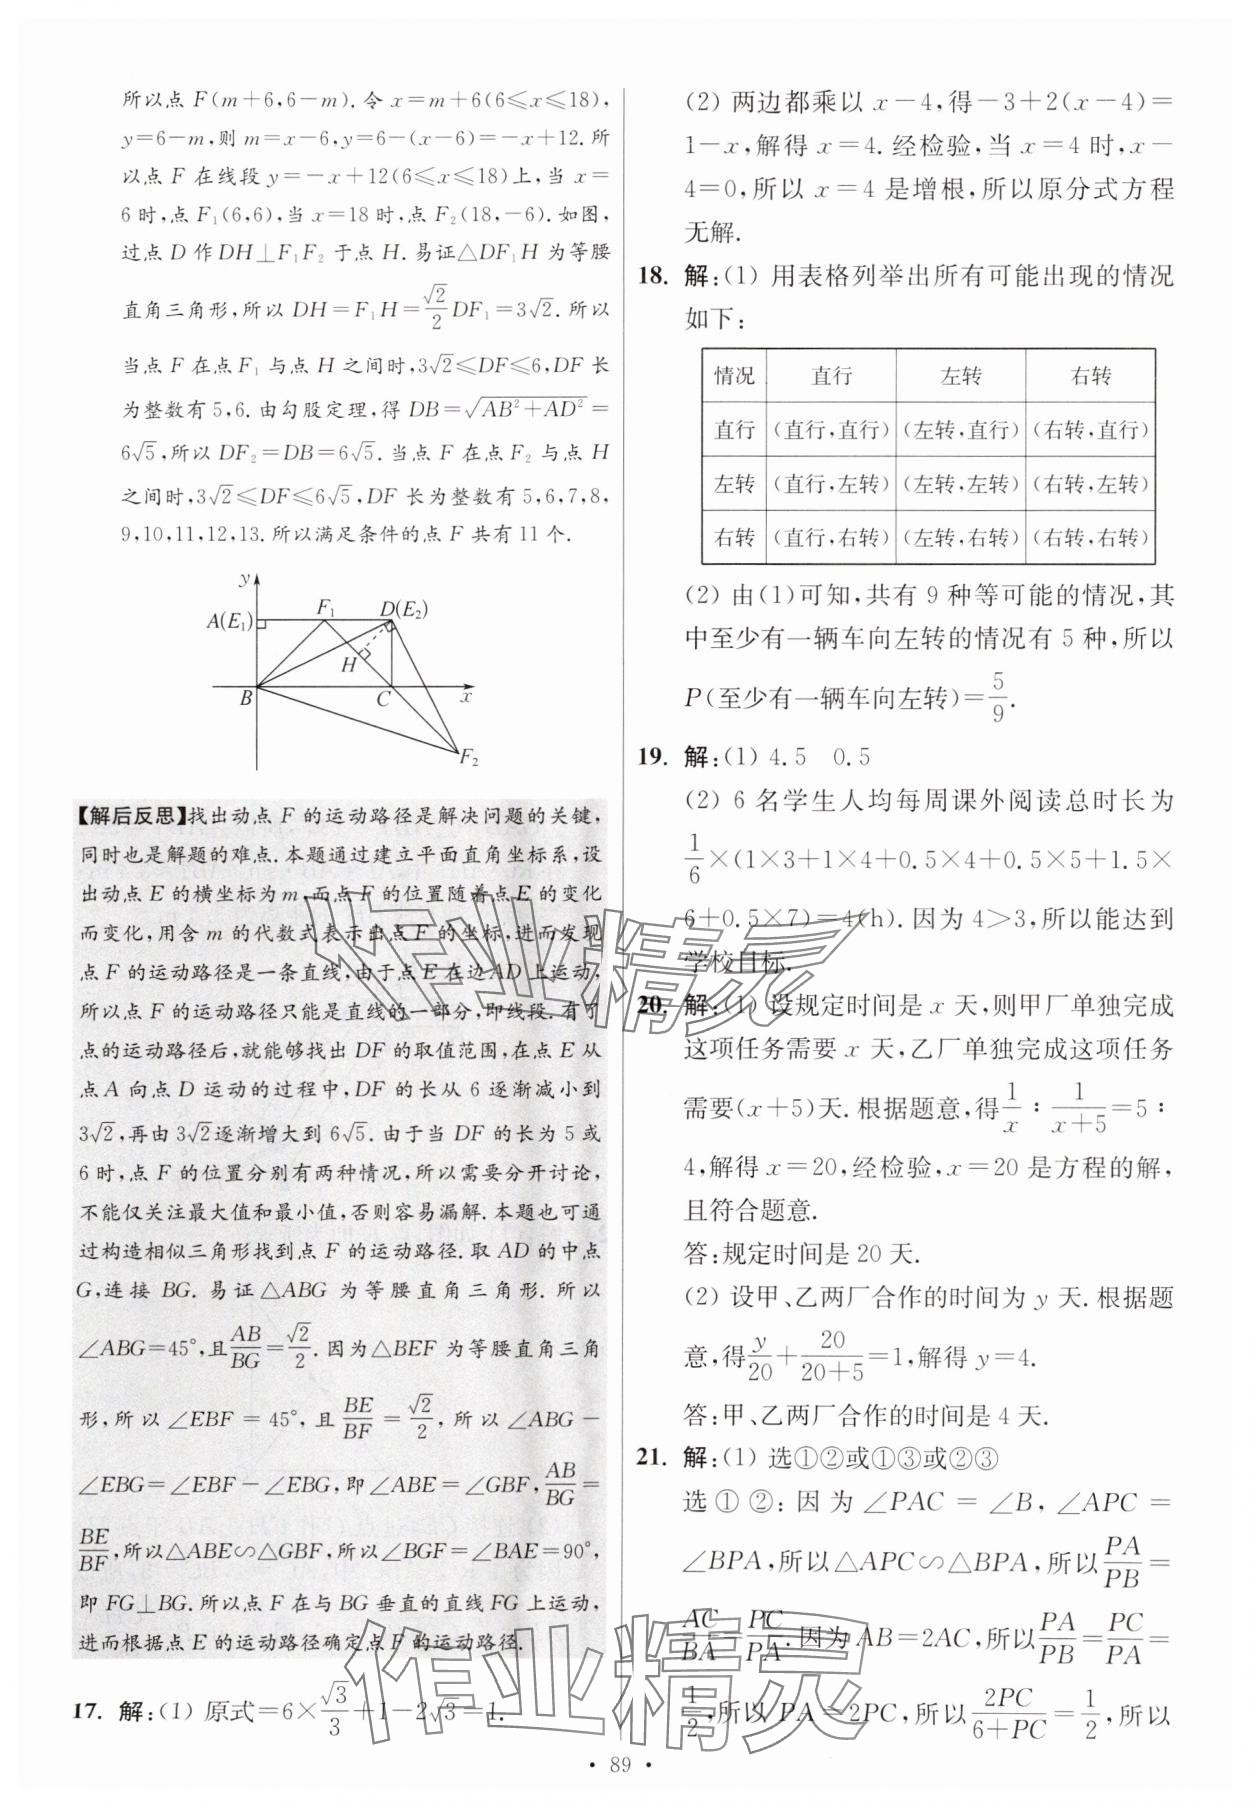 所以点 F(m+6,6-m). 令 x=m+6(6≤x≤18),
y=6-m,则 m=x-6,y=6-(x-6)=-x+12. 所
以点 F 在线段 y=-x+12(6≤x≤18)上,当 x=
6时,点 F₁(6,6),当 x=18 时,点 F₂(18,-6). 如图,
过点 D 作 DH⊥F₁F₂ 于点 H. 易证△DF₁H 为等腰
直角三角形,所以 DH=F₁H=√2/2 DF₁=3√2. 所以
当点 F 在点 F₁ 与点 H 之间时,3√2≤DF≤6,DF 长
为整数有 5,6. 由勾股定理,得 DB=√(AB²+AD²)=
6√5,所以 DF₂=DB=6√5. 当点 F 在点 F₂ 与点 H
之间时,3√2≤DF≤6√5,DF 长为整数有 5,6,7,8,
9,10,11,12,13. 所以满足条件的点 F 共有 11 个.
y
A(E₁) F₁ D(E₂)
H
B C x
F₂
【解后反思】找出动点 F 的运动路径是解决问题的关键,
同时也是解题的难点. 本题通过建立平面直角坐标系,设
出动点 E 的横坐标为 m,而点 F 的位置随着点 E 的变化
而变化,用含 m 的代数式表示出点 F 的坐标,进而发现
点 F 的运动路径是一条直线,由于点 E 在边 AD 上运动,
所以点 F 的运动路径只能是直线的一部分,即线段. 有了
点的运动路径后,就能够找出 DF 的取值范围,在点 E 从
点 A 向点 D 运动的过程中,DF 的长从 6 逐渐减小到
3√2,再由 3√2逐渐增大到 6√5. 由于当 DF 的长为 5 或
6 时,点 F 的位置分别有两种情况,所以需要分开讨论,
不能仅关注最大值和最小值,否则容易漏解. 本题也可通
过构造相似三角形找到点 F 的运动路径. 取 AD 的中点
G,连接 BG. 易证△ABG 为等腰直角三角形. 所以
∠ABG=45°,且AB/BG=√2/2. 因为△BEF 为等腰直角三角
形,所以∠EBF=45°,且 BE/BF=√2/2,所以∠ABG-
∠EBG=∠EBF-∠EBG,即∠ABE=∠GBF,AB/BG=
BE/BF,所以△ABE∽△GBF,所以∠BGF=∠BAE=90°,
即 FG⊥BG. 所以点 F 在与 BG 垂直的直线 FG 上运动,
进而根据点 E 的运动路径确定点 F 的运动路径.
17. 解:(1) 原式=6×√3/3+1-2√3=1.
(2) 两边都乘以 x-4,得-3+2(x-4)=
1-x,解得 x=4. 经检验,当 x=4 时,x-
4=0,所以 x=4 是增根,所以原分式方程
无解.
18. 解:(1) 用表格列举出所有可能出现的情况
如下:
情况 直行 左转 右转
直行 (直行,直行) (左转,直行) (右转,直行)
左转 (直行,左转) (左转,左转) (右转,左转)
右转 (直行,右转) (左转,右转) (右转,右转)
(2) 由(1)可知,共有 9 种等可能的情况,其
中至少有一辆车向左转的情况有 5 种,所以
P(至少有一辆车向左转)=5/9.
19. 解:(1) 4.5 0.5
(2) 6 名学生人均每周课外阅读总时长为
1/6×(1×3+1×4+0.5×4+0.5×5+1.5×
6+0.5×7)=4(h). 因为 4>3,所以能达到
学校目标.
20. 解:(1) 设规定时间是 x 天,则甲厂单独完成
这项任务需要 x 天,乙厂单独完成这项任务
需要(x+5)天. 根据题意,得1/x:1/(x+5)=5:
4,解得 x=20,经检验,x=20 是方程的解,
且符合题意.
答:规定时间是 20 天.
(2) 设甲、乙两厂合作的时间为 y 天. 根据题
意,得y/20+20/(20+5)=1,解得 y=4.
答:甲、乙两厂合作的时间是 4 天.
21. 解:(1) 选①②或①③或②③
选①②:因为∠PAC=∠B,∠APC=
∠BPA,所以△APC∽△BPA,所以PA/PB=
AC/BA=PC/PA. 因为 AB=2AC,所以PA/PB=PC/PA=
1/2,所以 PA=2PC,所以2PC/(6+PC)=1/2,所以
• 89 •
作业精灵
作业精灵